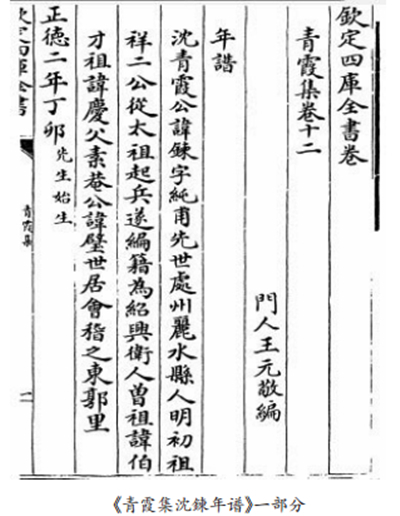 欽定四庫全書卷
青霞集卷十二
門人王元敬編
年譜
沈青霞公諱鍊字純甫先世處州麗水縣人明初祖
祥二公從太祖起兵遂編籍為紹興衛人曾祖諱伯
才祖諱慶父素菴公諱璧世居會稽之東郭里
正德二年丁卯先生始生
欽定四庫全書
青霞集
一
《青霞集沈鍊年谱》一部分